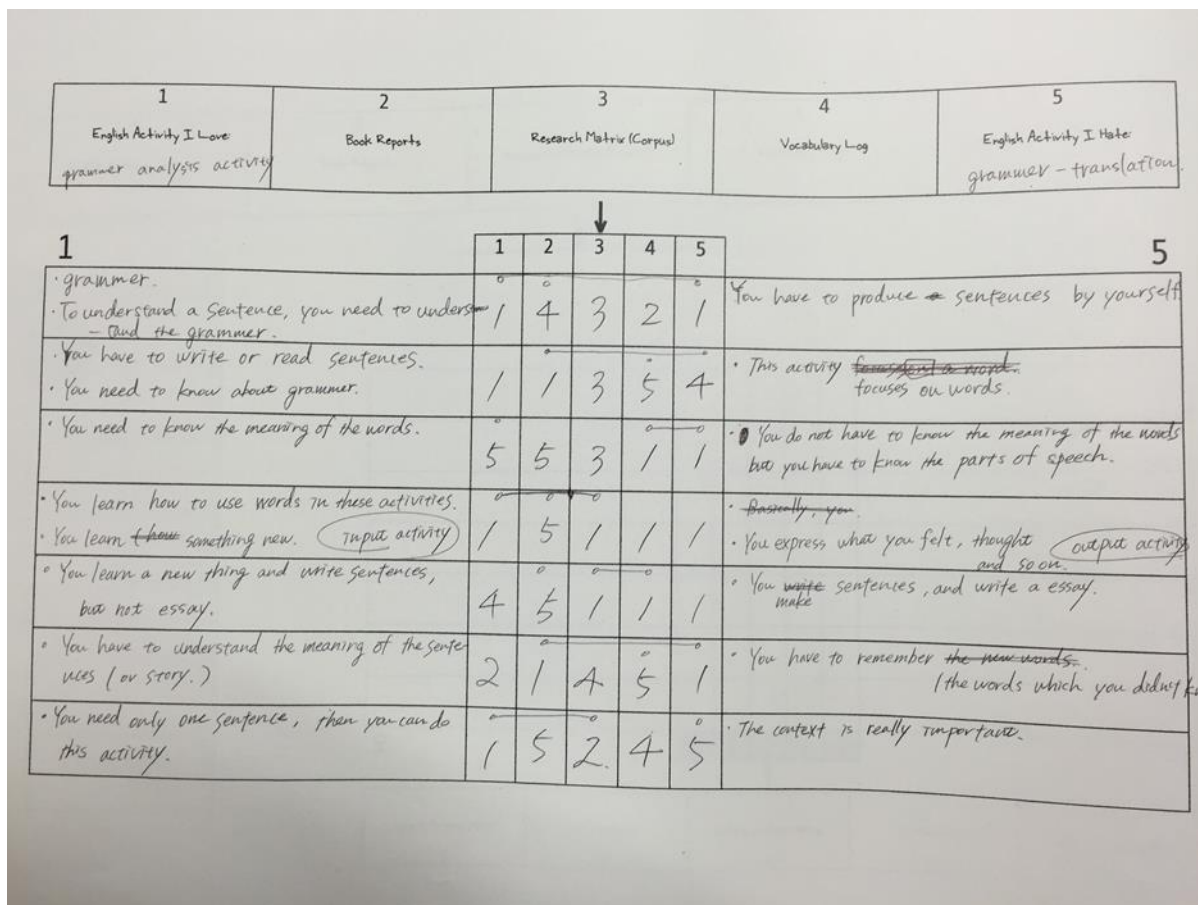 1
English Activity I Love:
grammer analysis activity
2
Book Reports
3
Research Matrix (Corpus)
4
Vocabulary Log
5
English Activity I Hate:
grammer - translation.
1
1 2 3 4 5
5
· grammer.
· To understand a sentence, you need to under
- tand the grammer.
1 4 3 2 1
You have to produce sentences by yourself
· You have to write or read sentences.
· You need to know about grammer.
1 1 3 5 4
· This activity
focuses on words.
· You need to know the meaning of the words.
5 5 3 1 1
· You do not have to know the meaning of the words
but you have to know the parts of speech.
· You learn how to use words in these activities.
· You learn something new. input activity
1 5 1 1 1
· Basically, you
· You express what you felt, thought
and so on. output activity
· You learn a new thing and write sentences,
but not essay.
4 5 1 1 1
· You write sentences, and write a essay.
make
· You have to understand the meaning of the sente
nces (or story.)
2 1 4 5 1
· You have to remember the new words.
(the words which you didn't
· You need only one sentence, then you can do
this activity.
1 5 2. 4 5
· The context is really important.